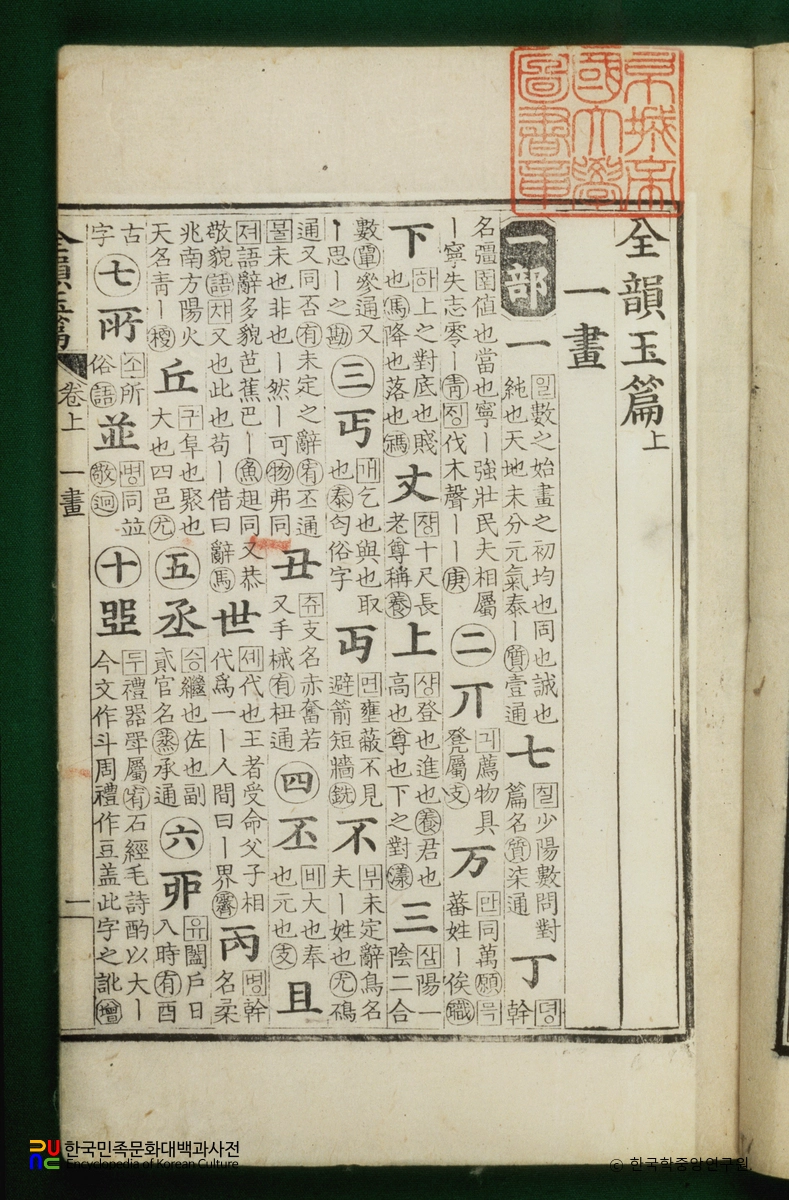 京城帝
國大學
圖書章
全韻玉篇上
一畫
一部 一 일數之始畫之初均也同也誠也
純也天地未分元氣泰丨質壹通
七 칠少陽數問對
篇名質柒通
丁 뎡幹
名彊圉値也當也寧丨強壯民夫相屬
丨寧失志零丨靑징伐木聲丨丨庚
二 丌 긔薦物具
凳屬支
万 만同萬願믁
蕃姓丨俟職
下 하上之對底也賤
也馬降也落也禡
丈 쟝十尺長
老尊稱養
上 샹登也進也養君也
高也尊也下之對漾
三 삼陽一
陰二合
數覃參通又
丨思丨之勘
三 丐 개乞也與也取
也泰匄俗字
丏 면壅蔽不見
避箭短牆銑
不 부未定辭鳥名
夫丨姓也尤鳺
通又同否有未定之辭宥丕通
불未也非也丨然丨可物弗同
丑 츄支名赤奮若
又手械有杻通
四 丕 비大也奉
也元也支
且
져語辭多貌芭蕉巴丨魚趄同又恭
敬貌語챠又也此也苟丨借曰辭馬
世 셰代也王者受命父子相
代爲一丨人間曰丨界霽
丙 병幹
名柔
兆南方陽火
天名靑丨稷
丘 구阜也聚也
大也四邑尤
五 丞 승繼也佐也副
貳官名蒸承通
六 丣 유闔戶日
入時有酉
古
字
七 所 소所
俗語
並 병同竝
敬迥
十 두禮器斝屬宥石經毛詩酌以大丨
今文作斗周禮作豆盖此字之訛增
全韻玉篇 卷上 一畫 一
한국민족문화대백과사전
Encyclopedia of Korean Culture
© 한국학중앙연구원